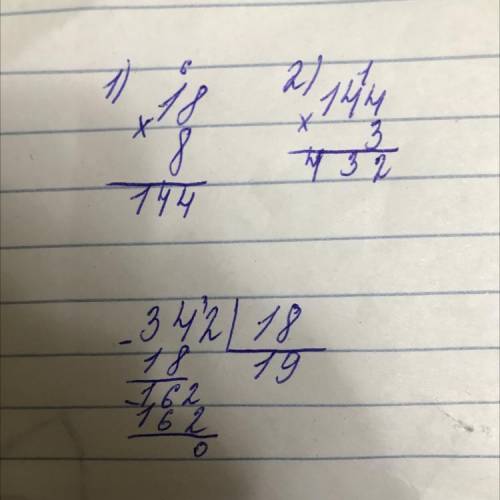 1) 6 2) 1
18 144
× 8 × 3
144 432
- 342 | 18
18 19
- 162
162
0